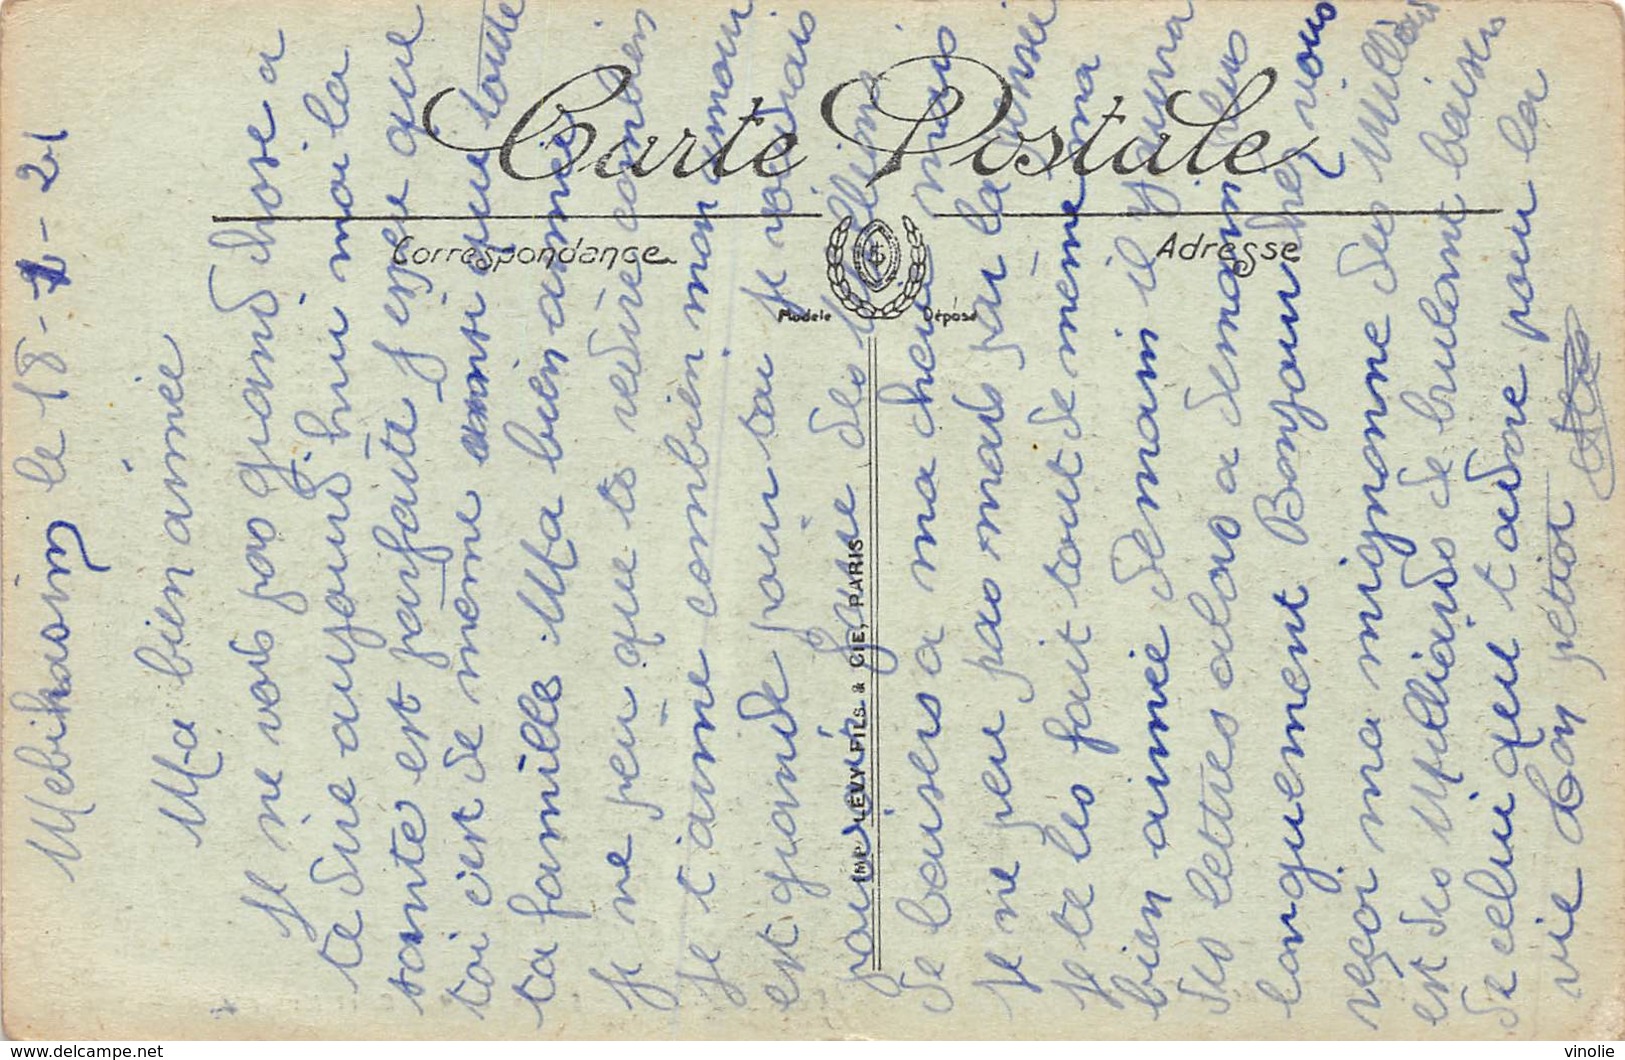 Carte Postale
Correspondance
Adresse
Modèle Déposé
IMP. LÉVY FILS & CIE, PARIS
le 18-1-21
Ma bien aimée
Je ne vois pas grand chose a
te dire aujourd hui moi la
santé est parfaite j espere que
toi c'est de meme ainsi que toute
ta famille Ma bien aimée
Je ne peu que te redire combien
Je t'aime combien mon amour
est grande pour toi je voudrais
pouvoir faire des
de baisers a ma cherie mais
Je ne peu pas mais par la pensée
Je te les fait tout de même ma
bien aimée demain il y aura
des lettres alors a demain plus
longuement Bonjour chez vous
reçoi ma mignonne des Milliers
et des Milliards de brulant baisers
de celui que t'adore pour la
vie Ton petiot
vinolie
www.delcampe.net